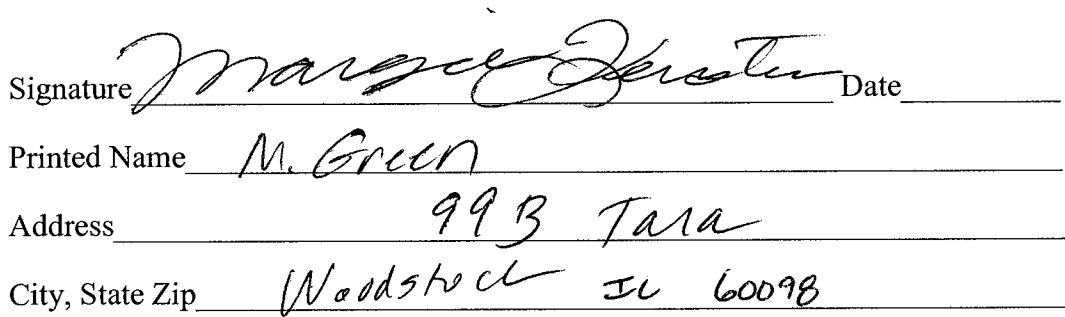 Signature Margie Kersten Date
Printed Name M. Green
Address 99 B Tara
City, State Zip Woodstock IL 60098